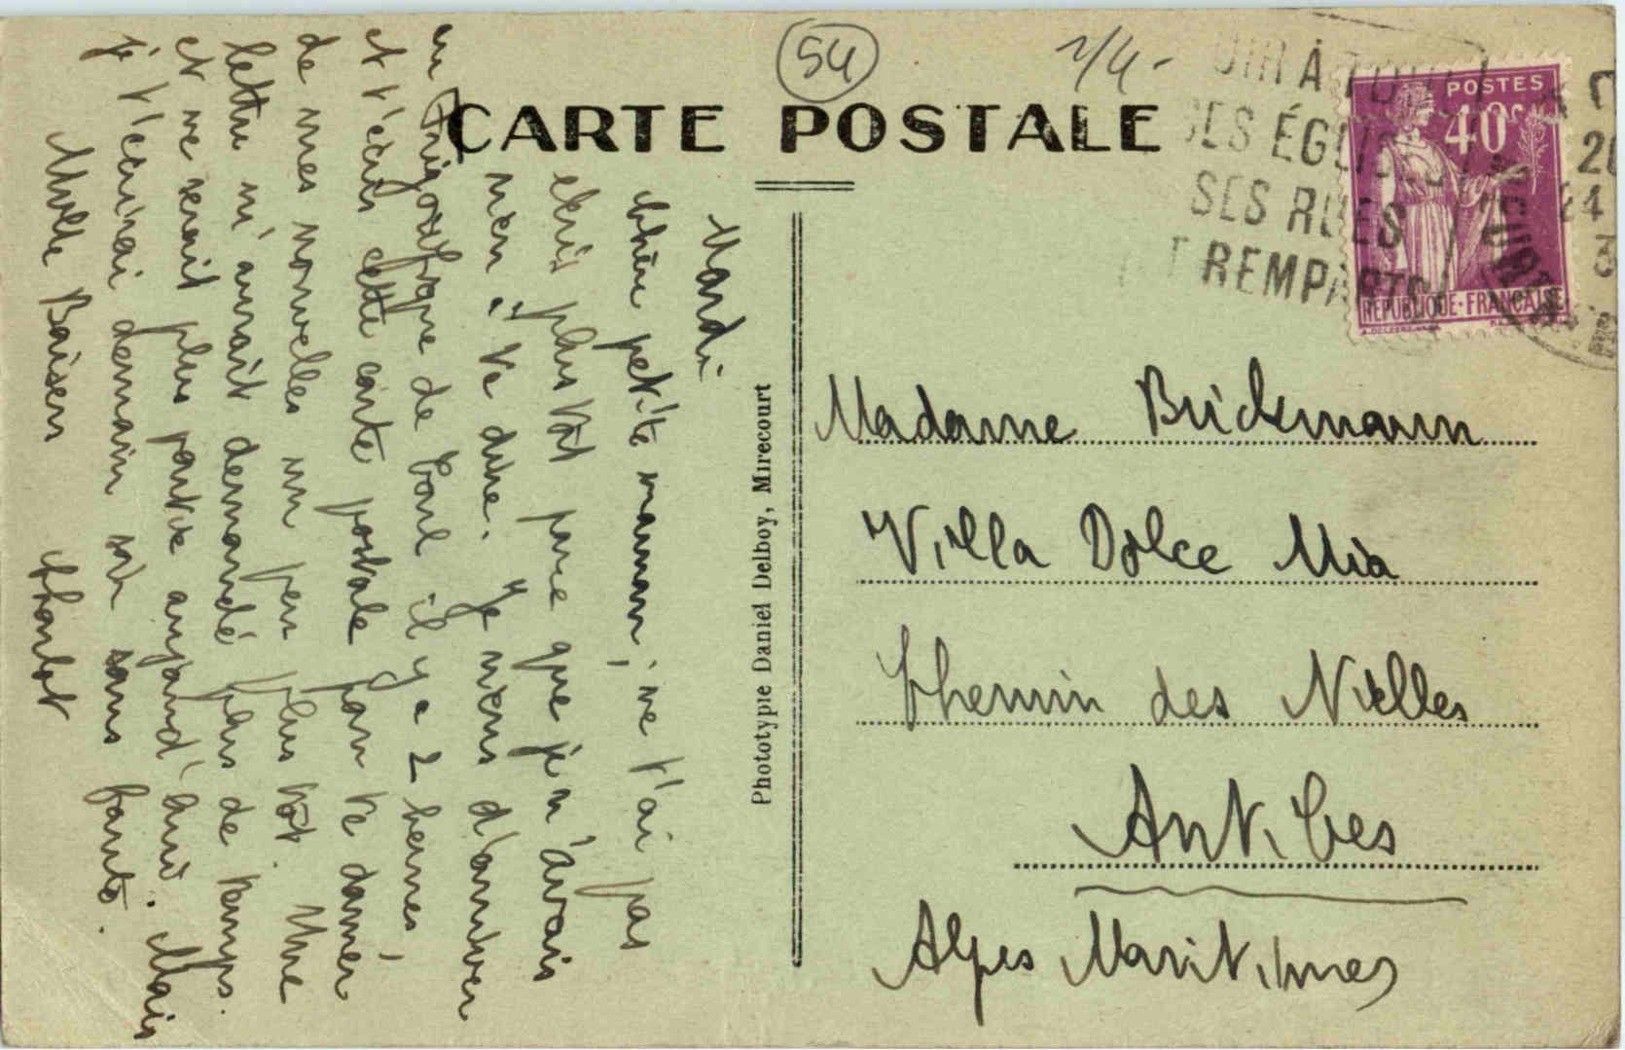 54
2/4-
CARTE POSTALE
OIR À TOUL
SES ÉGLISES
SES RUES
ET REMPARTS
POSTES
40c
REPUBLIQUE-FRANÇAISE
Mardi
Chère petite maman, ne t'ai pas
écrit plus tôt parce que je n'avais
rien à te dire. Je viens d'arriver
en Frigorifique de Toul il y a 2 heures,
et t'écris cette carte postale pour te donner
de mes nouvelles un peu plus tôt. Une
lettre m'aurait demandé plus de temps
et ne serait plus partie aujourd'hui. Mais
je t'écrirai demain soir sans faute.
Mille Baisers
Charlot
Phototypie Daniel Delboy, Mirecourt
Madame Brickmann
Villa Dolce Mia
Chemin des Nielles
Antibes
Alpes Maritimes